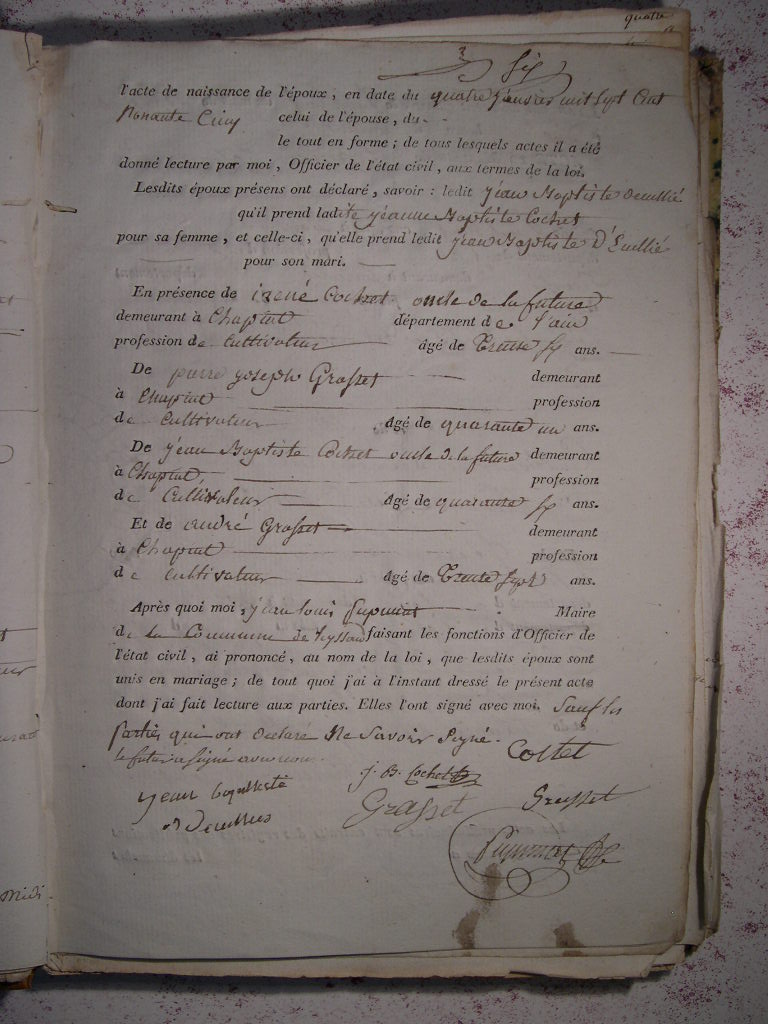 quatre
six
l'acte de naissance de l'époux, en date du quatre janvier mil sept Cent
Nonante Cinq celui de l'épouse, du
le tout en forme ; de tous lesquels actes il a été
donné lecture par moi, Officier de l'état civil, aux termes de la loi.
Lesdits époux présens ont déclaré, savoir : ledit jean Baptiste
qu'il prend ladite jeanne Baptiste Cochet
pour sa femme, et celle-ci, qu'elle prend ledit jean Baptiste D'Euillié
pour son mari.
En présence de irené Cochet oncle de la future
demeurant à Chaptut département de l'ain
profession de Cultivateur âgé de trente six ans.
De pierre joseph Grasset demeurant
à Chaptut profession
de Cultivateur âgé de quarante un ans.
De jean Baptiste Cochet oncle de la future demeurant
à Chaptut, profession
de Cultivateur âgé de quarante six ans.
Et de andré Grasset demeurant
à Chaptut profession
de Cultivateur âgé de trente sept ans.
Après quoi moi, jean louis Maire
de la Commune de leyssard faisant les fonctions d'Officier de
l'état civil, ai prononcé, au nom de la loi, que lesdits époux sont
unis en mariage ; de tout quoi j'ai à l'instant dressé le présent acte
dont j'ai fait lecture aux parties. Elles l'ont signé avec moi, Sauf les
parties qui ont declaré Ne Savoir Signé.
le futur a signé avec nous
Coltet
j. B. Cochet
jean baptiste
Grasset
Grasset
Midi